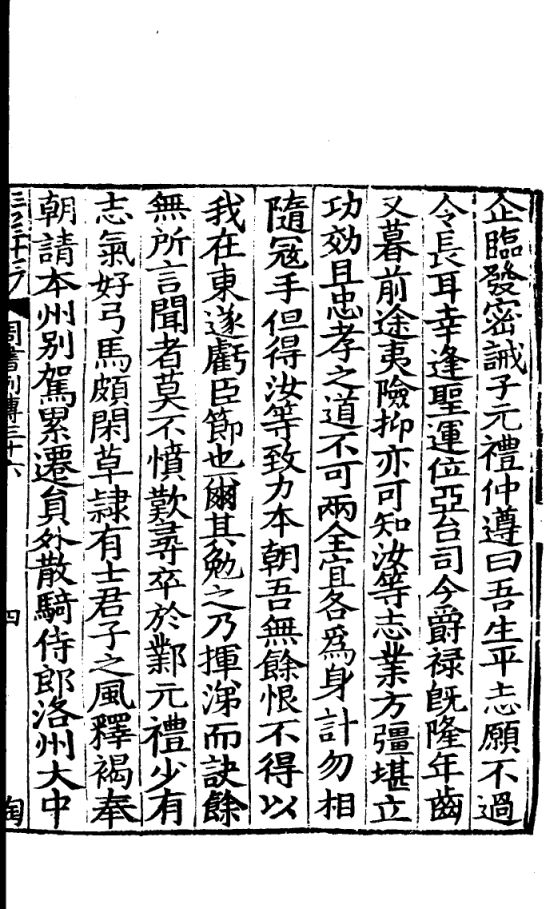 企臨發密誡子元禮仲遵曰吾生平志願不過
令長耳幸逢聖運位亞台司今爵禄旣隆年齒
又暮前途夷險抑亦可知汝等志業方彊堪立
功效且忠孝之道不可兩全宜各爲身計勿相
隨寇手但得汝等致力本朝吾無餘恨不得以
我在東遂虧臣節也爾其勉之乃揮涕而訣餘
無所言聞者莫不憤歎尋卒於鄴元禮少有
志氣好弓馬頗閑草隷有士君子之風釋褐奉
朝請本州别駕累遷員外散騎侍郎洛州大中
周書列傳三十六
四